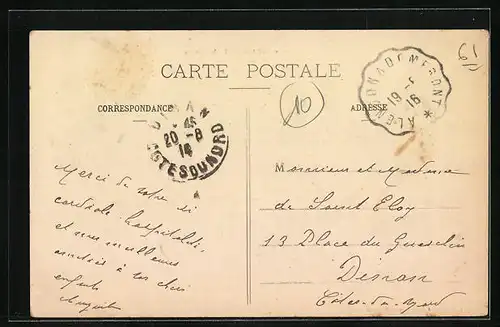 61
CARTE POSTALE
ALENÇON À DOMFRONT
19 -8
16
10
CORRESPONDANCE
ADRESSE
DINAN
20 -8
14
COTES DU NORD
Merci de votre si
cordiale hospitalité
et nos meilleures
amitiés à vos chers
enfants
Monsieur et Madame
de Saint Eloy
13 Place du Guesclin
Dinan
Côtes-du-Nord